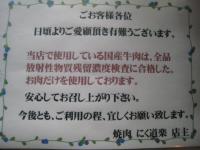 ごお客様各位
日頃よりご愛顧頂き有難うございます。
当店で使用している国産牛肉は、全品
放射性物質残留濃度検査に合格した、
お肉だけを使用しております。
安心してお召し上がり下さい。
今後とも、ご利用の程、宜しくお願い致します。
焼肉 にく道楽 店主